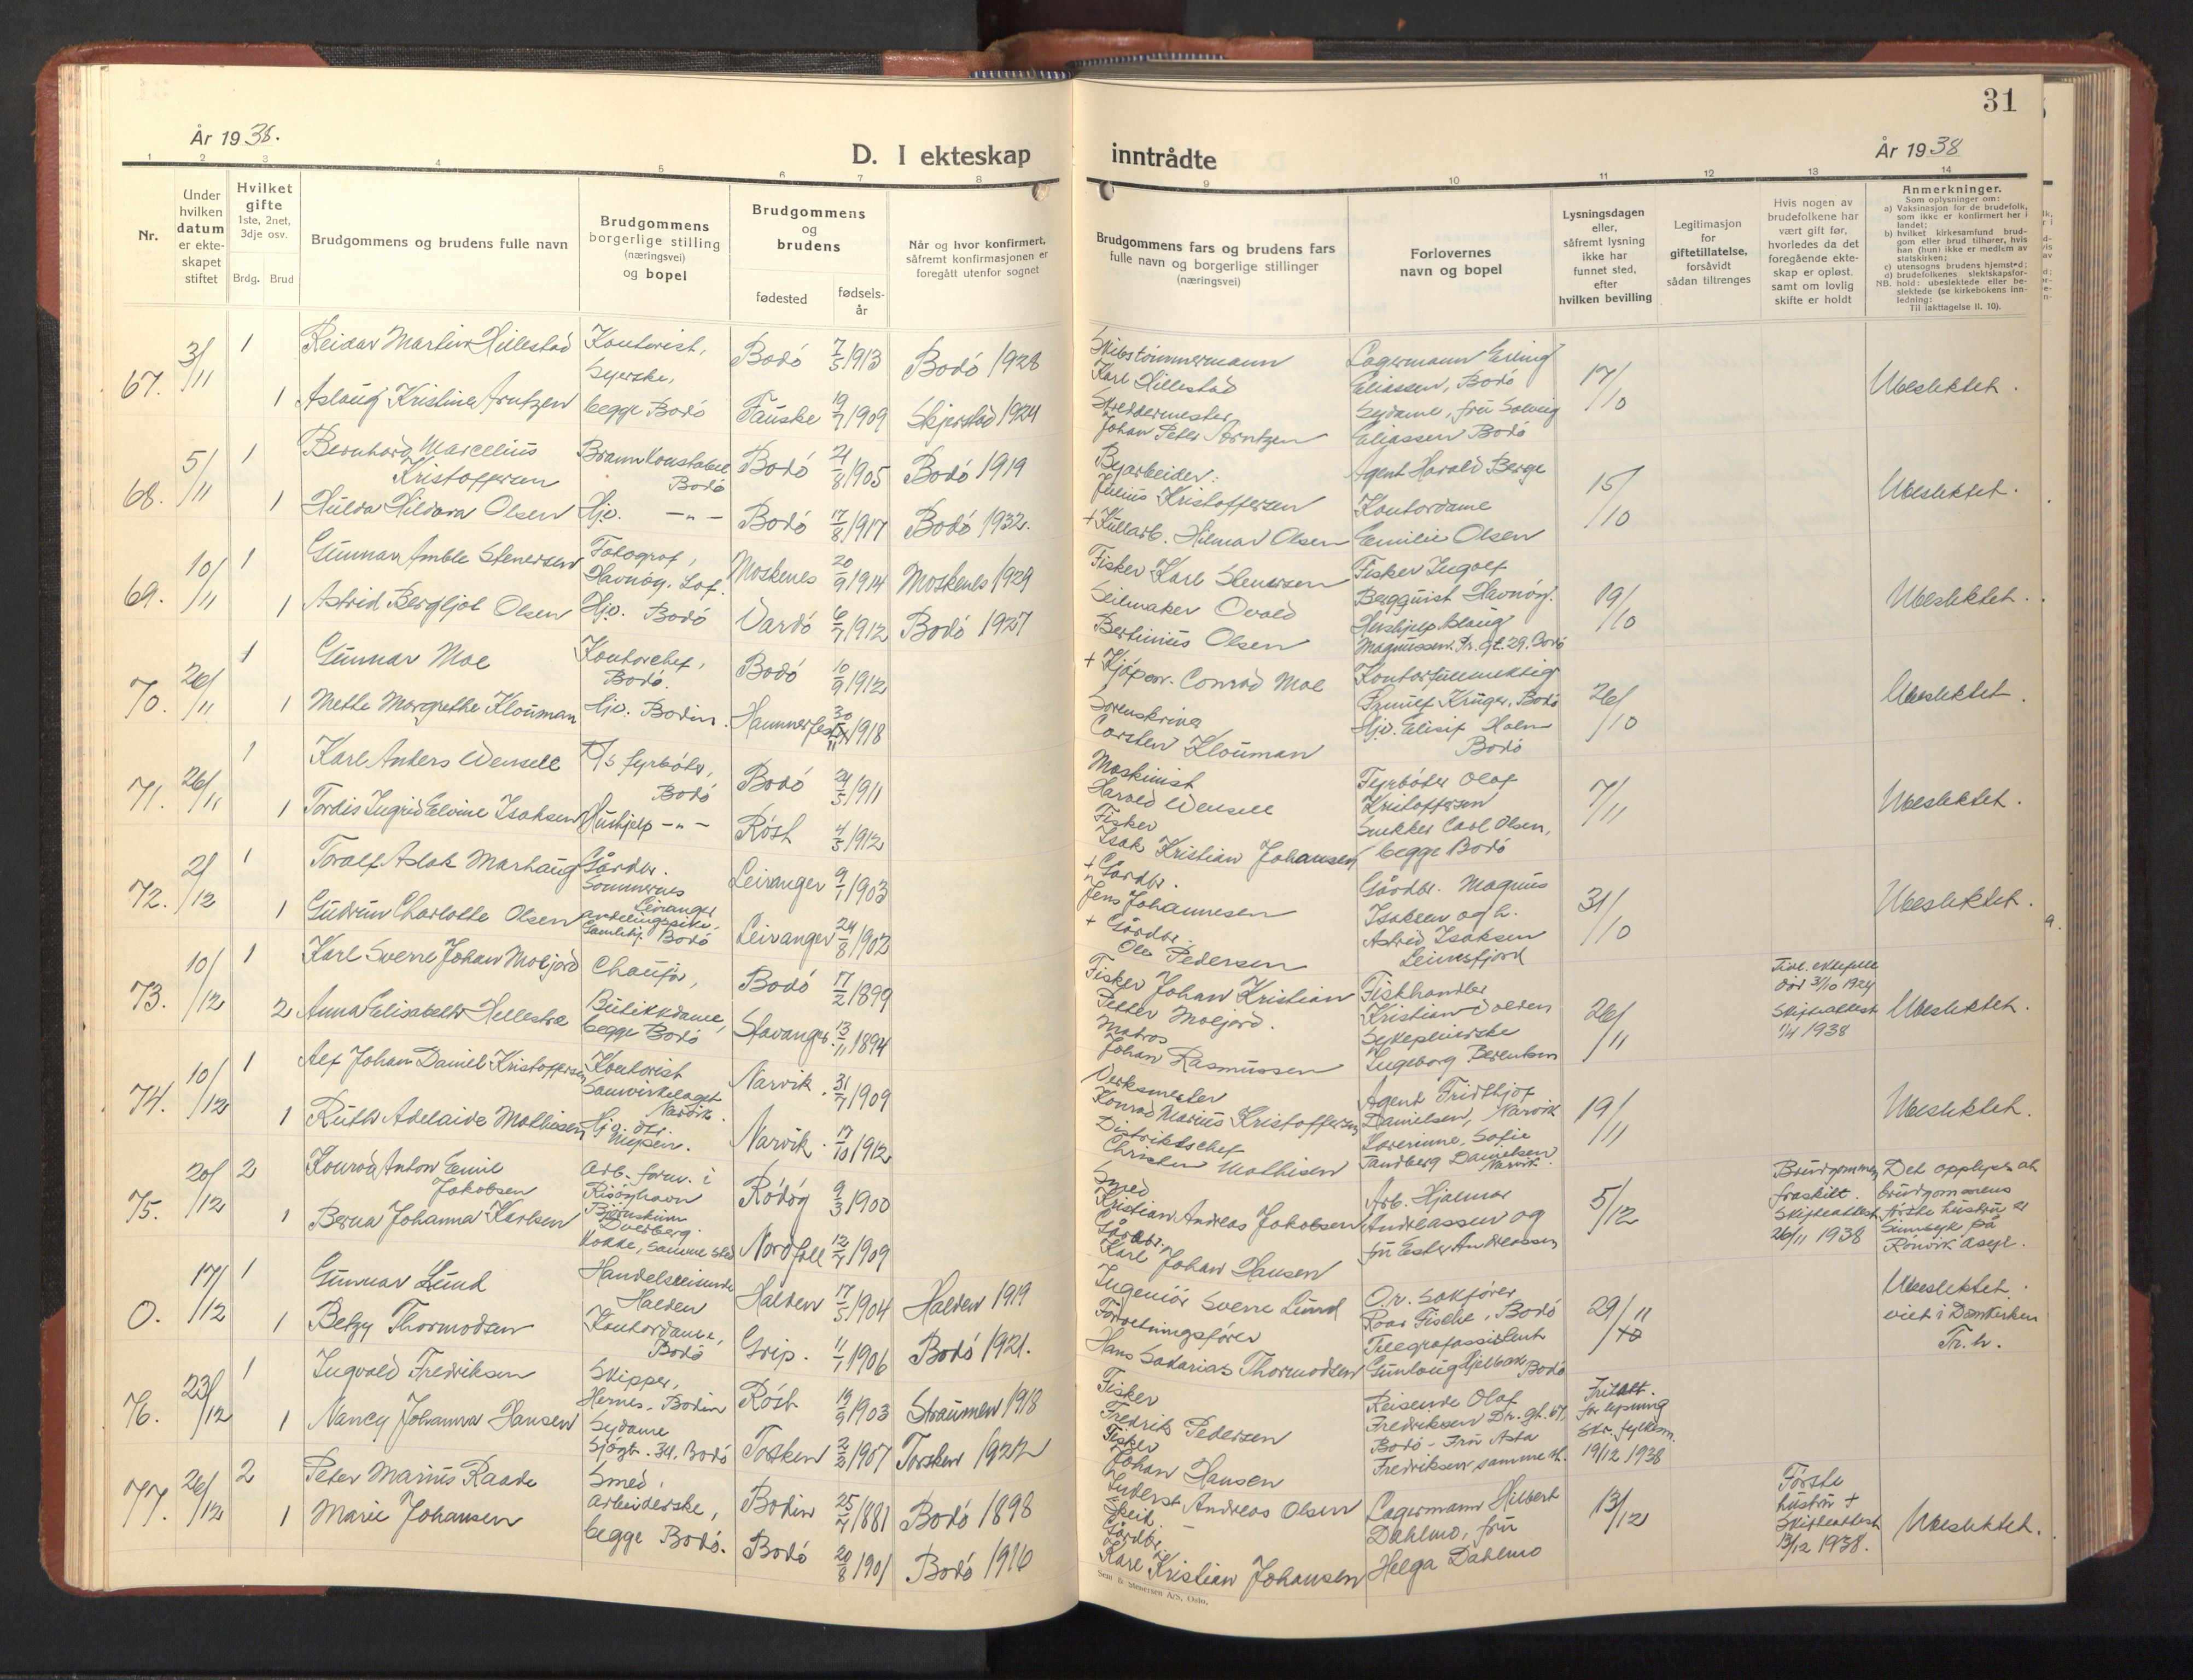 31
År 1938.
D. I ekteskap
inntrådte
År 1938
1 2 3 4 5 6 7 8 9 10 11 12 13 14
Nr.
Under
hvilken
datum
er ekte-
skapet
stiftet
Hvilket
gifte
1ste, 2net,
3dje osv.
Brdg. Brud
Brudgommens og brudens fulle navn
Brudgommens
borgerlige stilling
(næringsvei)
og bopel
Brudgommens
og
brudens
fødested
fødsels-
år
Når og hvor konfirmert,
såfremt konfirmasjonen er
foregått utenfor sognet
Brudgommens fars og brudens fars
fulle navn og borgerlige stillinger
(næringsvei)
Forlovernes
navn og bopel
Lysningsdagen
eller,
såfremt lysning
ikke har
funnet sted,
efter
hvilken bevilling
Legitimasjon
for
giftetillatelse,
forsåvidt
sådan tiltrenges
Hvis nogen av
brudefolkene har
vært gift før,
hvorledes da det
foregående ekte-
skap er opløst,
samt om lovlig
skifte er holdt
Anmerkninger.
Som oplysninger om:
a) Vaksinasjon for de brudefolk,
som ikke er konfirmert her i
landet;
b) hvilket kirkesamfund brud-
gom eller brud tilhører, hvis
han (hun) ikke er medlem av
statskirken;
c) utensogns brudens hjemsted;
d) brudefolkenes slektskapsfor-
hold: ubeslektede eller be-
slektede (se kirkebokens inn-
ledning:
NB.
Til iakttagelse II. 10).
67. 3/11 1 Reidar Martin Hillestad
Kontorist,
Bodó 7/5 1913 Bodó 1928
1 Aslaug Kristine Arntzen
Syerske,
begge Bodó
Fauske 19/7 1909 Skjerstad 1924
Skibstömmermann
Karl Hillestad
Skreddermester
Johan Peter Arntzen
Lagermann Erling
Eliassen, Bodó
Sydame, frú Solveig
Eliassen Bodó
17/10
Ubeslektet.
68. 5/11 1 Bernhard Marcelius
Kristoffersen
Brannkonstabel
Bodó
Bodó 21/8 1905 Bodó 1919
1 Hulda Hildora Olsen Hjv. -"- Bodó 17/8 1917 Bodó 1932.
Byarbeider:
Julius Kristoffersen
+ Kullarb. Hilmar Olsen
Agent Harald Berge
Kontordame
Emilie Olsen
15/10
Ubeslektet.
69. 10/11 1 Gunnar Amble Stenersen
Fotograf,
Havnøg. Lof.
Moskenes 20/9 1914 Moskenes 1929
1 Astrid Bergljot Olsen Hjv. Bodó Vardó 6/7 1912 Bodó 1927
Fisker Karl Stenersen
Seilmaker Ovald
Bertinius Olsen
Fisker Ingolf
Bergquist Havnøy.
Hushjelp Aslaug
Magnussen. Pr. gt. 29. Bodó
19/10
Ubeslektet.
70. 26/11 1 Gunnar Moe
Kontorchef,
Bodó.
Bodó 10/9 1912
1 Mette Margrethe Klouman Hjv. Bodin. Hammerfest 30/11 1918
+ Kjópm. Conrad Moe
Sorenskriver
Carsten Klouman
Kontorfullmektig
Krüger, Bodó
Hjv. Elisif Holm
Bodó
26/10
Ubeslektet.
71. 26/11 1 Karl Anders Wensell
D/S fyrbóter,
Bodó
Bodó 24/5 1911
1 Tordis Ingrid Elvine Isaksen Hushjelp -"- Róst 4/5 1912
Maskinist
Harald Wensell
Fisker
Isak Kristian Johansen
Fyrbóter Olaf
Kristoffersen
Snekker Carl Olsen,
begge Bodó
7/11
Ubeslektet.
72. 2/12 1 Toralf Aslak Marhaug
Gårdbr.
Sommernes
Leiranger
Leiranger 9/1 1903
1 Gudrun Charlotte Olsen
avdelingspike,
Gamlehj. Bodó
Leiranger 24/8 1902
+ Gårdbr.
Jens Johannesen
+ Gårdbr.
Ole Pedersen
Gårdbr. Magnus
Isaksen og h.
Astrid Isaksen
Leinesfjord
31/10
Ubeslektet.
73. 10/12 1 Karl Sverre Johan Moljord Chaufór, Bodó 17/2 1899
2 Anna Elisabeth Hellestræ
Butikkdame,
begge Bodó
Stavanger. 13/11 1894
Fisker Johan Kristian
Petter Moljord.
Matros
Johan Rasmussen
Fiskhandler
Kristian Dolven
Sykepleierske
Ingeborg Berentsen
26/11
Tidl. ektefelle
död 31/10 1924
Skifteattest
1/4 1938
Ubeslektet.
74. 10/12 1 Alf Johan Daniel Kristoffersen
Kontorist
Samvirkelaget
Narvik.
Narvik. 31/7 1909
1 Ruth Adelaide Mathisen Hjv. Narvik. 17/10 1912
Verksmester
Konrad Marius Kristoffersen
Distriktschef
Christen Mathisen
Agent Fridthjof
Danielsen, Narvik
Lærerinne, Sofie
Tandberg Danielsen
Narvik.
19/11
Ubeslektet.
75. 20/12 2 Konrad Anton Emil
Jakobsen
Arb. form. i
Risóyhavn
Bjørnskinn
Ródóy 9/3 1900
1 Berna Johanna Karlsen
Dverberg.
Kokke, samme sted
Nordfold 12/7 1909
Smed
Kristian Andreas Jakobsen
Gårdbr.
Karl Johan Hansen
Arb. Hjalmar
Andreassen og
frú Ester Andreassen
5/12
Brudgommen
fraskilt.
Skifteattest
26/11 1938
Det opplyses at
brudgommens
første hustru er
sinnsyk på
Rónvik asyl.
0. 17/12 1 Gunnar Lund
Handelsreisende
Halden
Halden 17/5 1904 Halden 1919
1 Betzy Thormodsen
Kontordame,
Bodó
Grip. 11/7 1906 Bodó 1921.
Ingeniór Sverre Lund
Forretningsfører
Hans Sakarias Thormodsen
O.r. Sakfører
Roar Tischel, Bodó
Telegrafassistent
Gunlaug Bodó
29/11
Ubeslektet.
viet i Domkirken
Tr. h.
76. 23/12 1 Ingvald Fredriksen
Skipper,
Hernes. Bodin
Róst 19/9 1903 Straumen 1918
1 Nancy Johanna Hansen
Sydame
Sjógt. 34. Bodó
Torsken 2/2 1907 Torsken 1922
Fisker
Fredrik Pedersen
Fisker
Johan Hansen
Reisende Olaf
Fredriksen Dr. gt. 67,
Bodó - Frú Asta
Fredriksen, samme st.
Fritatt.
for lysning
Skr. fylkesm.
19/12 1938
77. 26/12 2 Peter Marius Raade Smed, Bodin 25/4 1881 Bodó 1898
1 Marie Johansen
arbeiderske,
begge Bodó.
Bodó 20/8 1901 Bodó 1916
Inderst Andreas Olsen
Gårdbr.
Karl Kristian Johansen
Lagermann Hilbert
Dahlmo, frú
Helga Dahlmo
13/12
Fórste
hustru +
Skifteattest
13/12 1938.
Ubeslektet.
Sem & Stenersen A/S, Oslo.